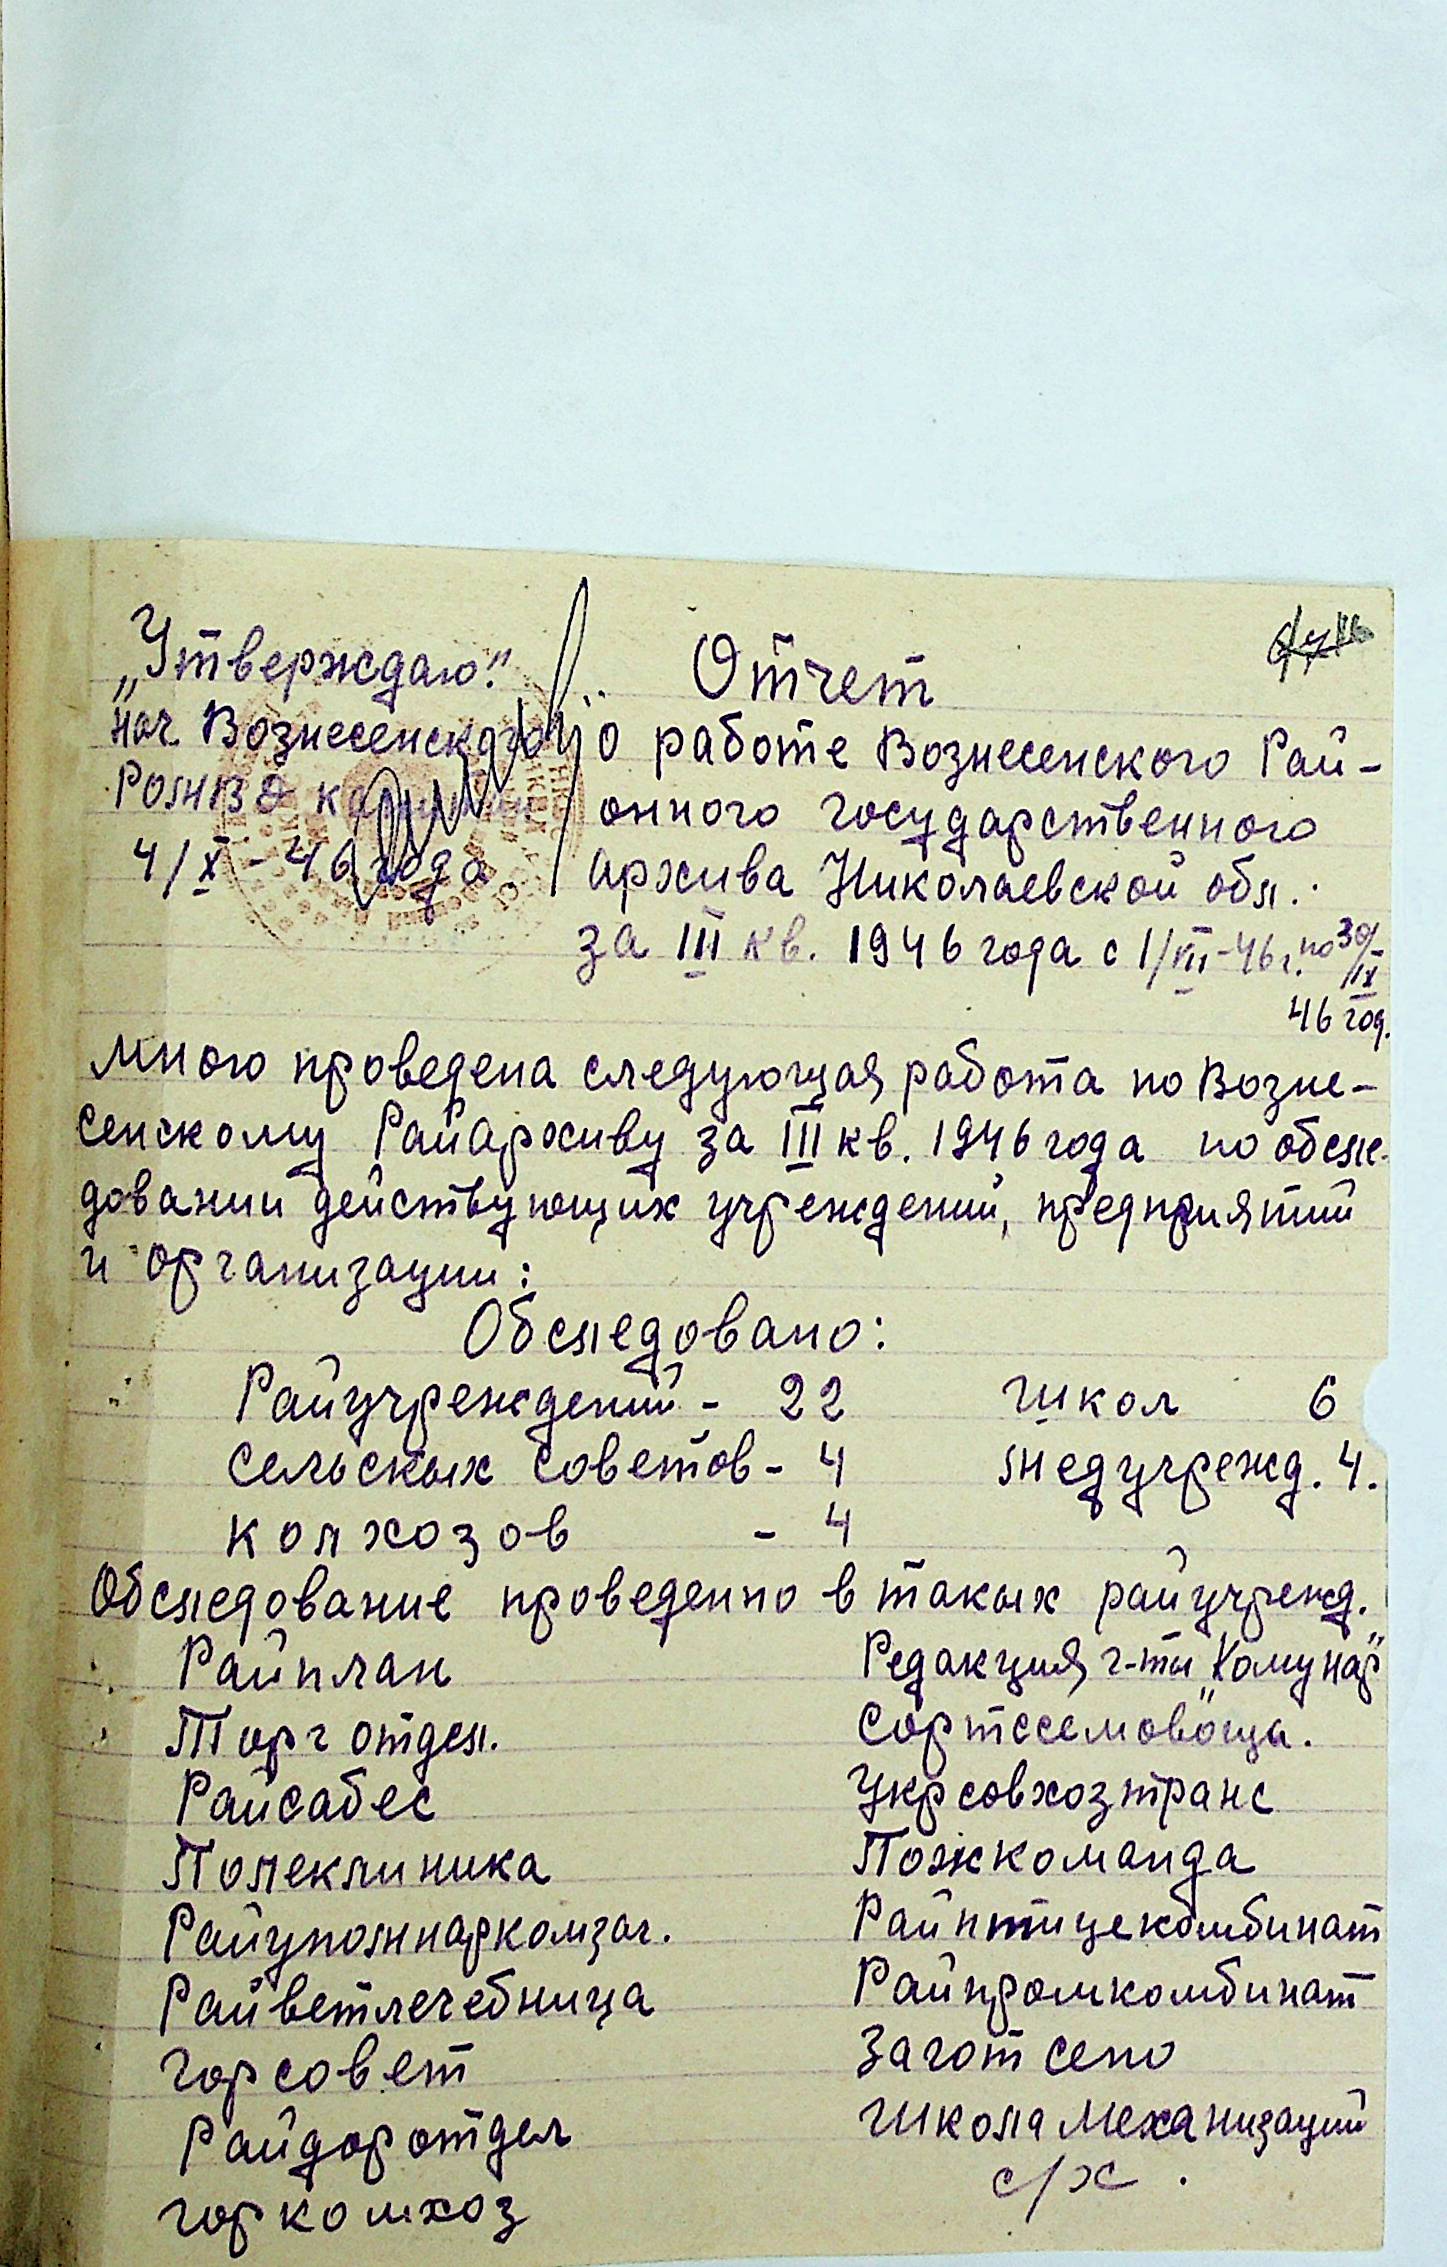 „Утверждаю."
нач. Вознесенского
РОМВД капитан
4/X - 46 года
Отчет
о работе Вознесенского Рай-
онного государственного
архива Николаевской обл.
за III кв. 1946 года с 1/VII-46 г. по 30/IX
46 год.
Мною проведена следующая работа по Возне-
сенскому РайАрхиву за III кв. 1946 года по обсле-
довании действующих учреждений, предприятий
и организации:
Обследовано:
Райучреждений - 22 Школ 6
Сельскых советов - 4 Медучрежд. 4.
Колхозов - 4
Обследование проведенно в такых райучрежд.
Райплан
Торг отдел.
Райсабес
Полеклиника
Райуполнаркомзаг.
Райветлечебница
Горсовет
Райдоротдел
Горкомхоз
Редакция г-ты „Комунар"
Сортсемовоща.
Укрсовхозтранс
Пожкоманда
Райптицекомбинат
Райпромкомбинат
Заготсено
Школа Механизаций
с/х.